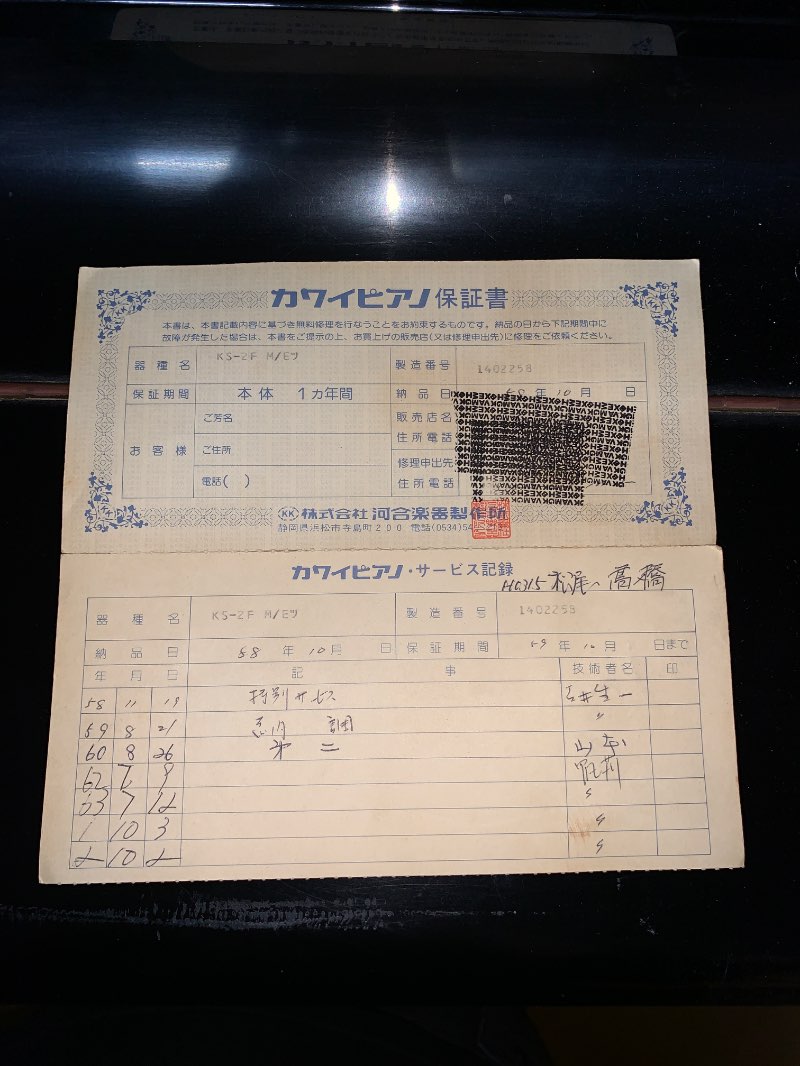 カワイピアノ 保証書
本書は、本書記載内容に基づき無料修理を行なうことをお約束するものです。納品の日から下記期間中に
故障が発生した場合は、本書をご提示の上、お買上げの販売店(又は修理申出先)に修理をご依頼ください。
器種名 KS-2F M/Eツ 製造番号 1402258
保証期間 本体 1カ年間 納品日 58年10月 日
お客様 ご芳名 販売店名
ご住所 住所電話
修理申出先
電話( ) 住所電話
KK 株式会社 河合楽器製作所
静岡県浜松市寺島町200 電話(0534)54
カワイピアノ・サービス記録
松尾 高橋
器種名 KS-2F M/Eツ 製造番号 1402258
納品日 58年10月 日 保証期間 59年10月 日まで
年月日 記事 技術者名 印
58 11 19 特別サービス
59 8 21 〃
60 8 26 山本
62 7 9
63 7 12 〃
1 10 3 〃
2 10 2 〃